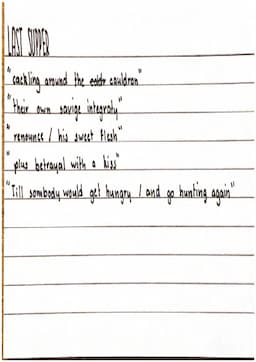 LAST SUPPER
"cackling around the cauldron"
"their own savige integraty"
"renounce / his sweet flesh"
"plus betrayal with a kiss"
"Till sombody would get hungry / and go hunting again"